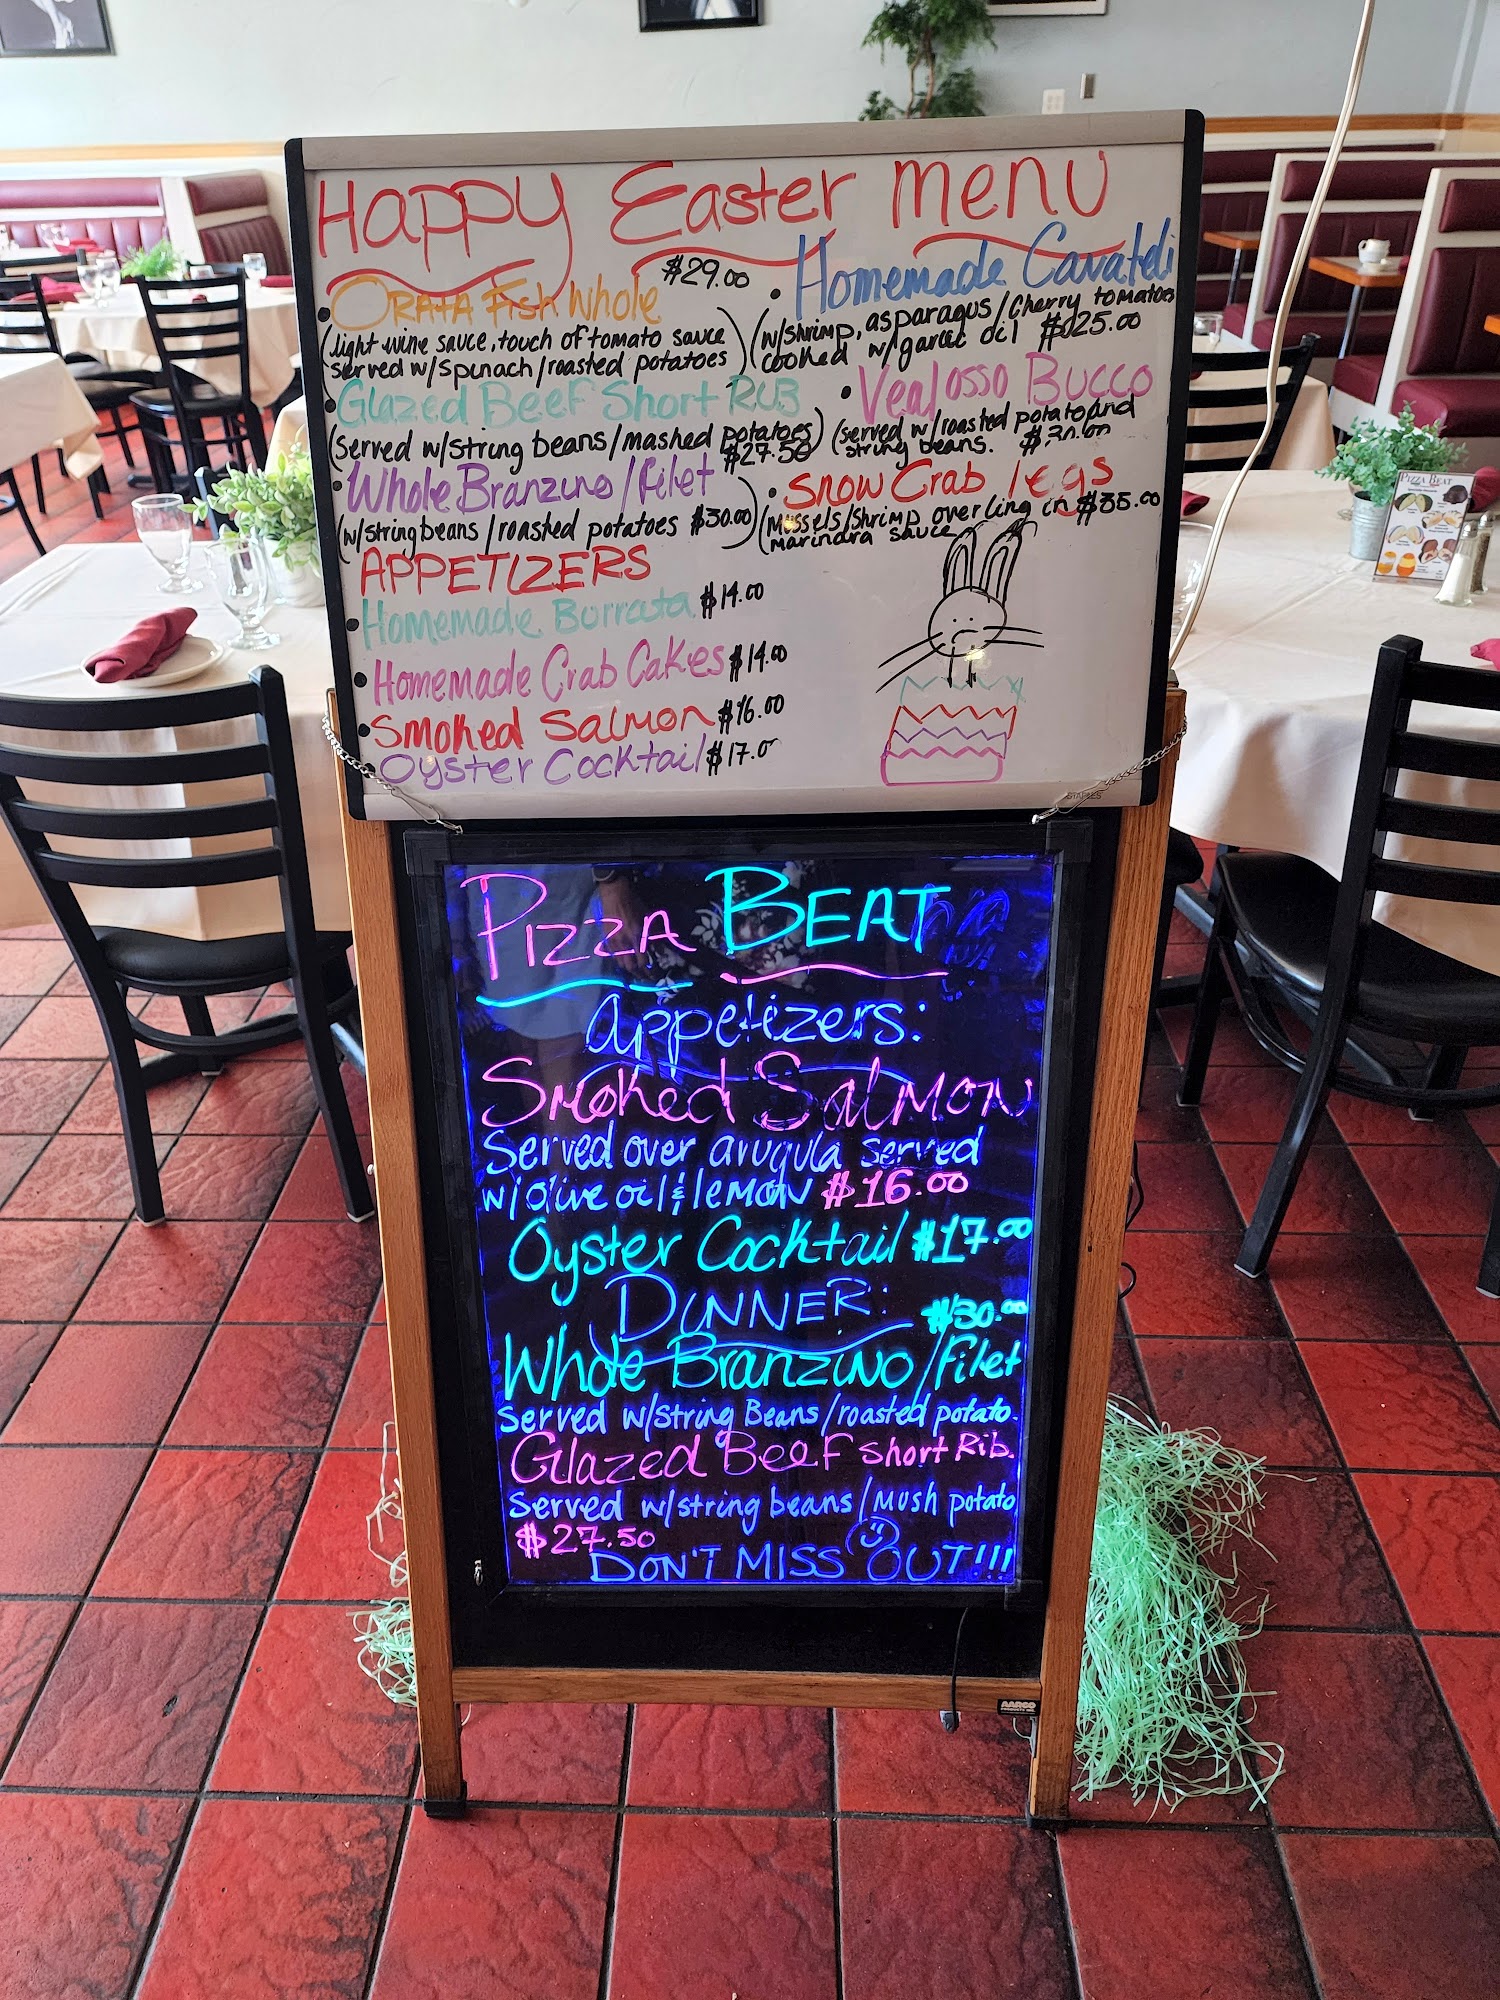 Happy Easter Menu
• Orata Fish Whole $29.00
(light wine sauce, touch of tomato sauce
served w/spinach/roasted potatoes)
• Glazed Beef Short Rib
(served w/string beans/mashed potatoes)
$27.50
• Whole Branzino/Filet
(w/string beans/roasted potatoes $30.00)
• Homemade Cavateli
(w/shrimp, asparagus/cherry tomatoes
cooked w/garlic oil $25.00
• Veal Osso Bucco
(served w/roasted potato and
string beans. $30.00
• Snow Crab legs
(Mussels/Shrimp over ling in $35.00
marindra sauce
APPETIZERS
• Homemade Burrata $14.00
• Homemade Crab Cakes $14.00
• Smoked Salmon $16.00
• Oyster Cocktail $17.0
STAPLES
PIZZA BEAT
Appetizers:
Smoked Salmon
Served over arugula served
w/olive oil & lemon $16.00
Oyster Cocktail $17.00
DINNER:
$30.00
Whole Branzino/Filet
Served w/string Beans/roasted potato.
Glazed Beef short Rib.
Served w/string beans/mush potato
$27.50
DON'T MISS OUT!!!
AARCO
PIZZA BEAT